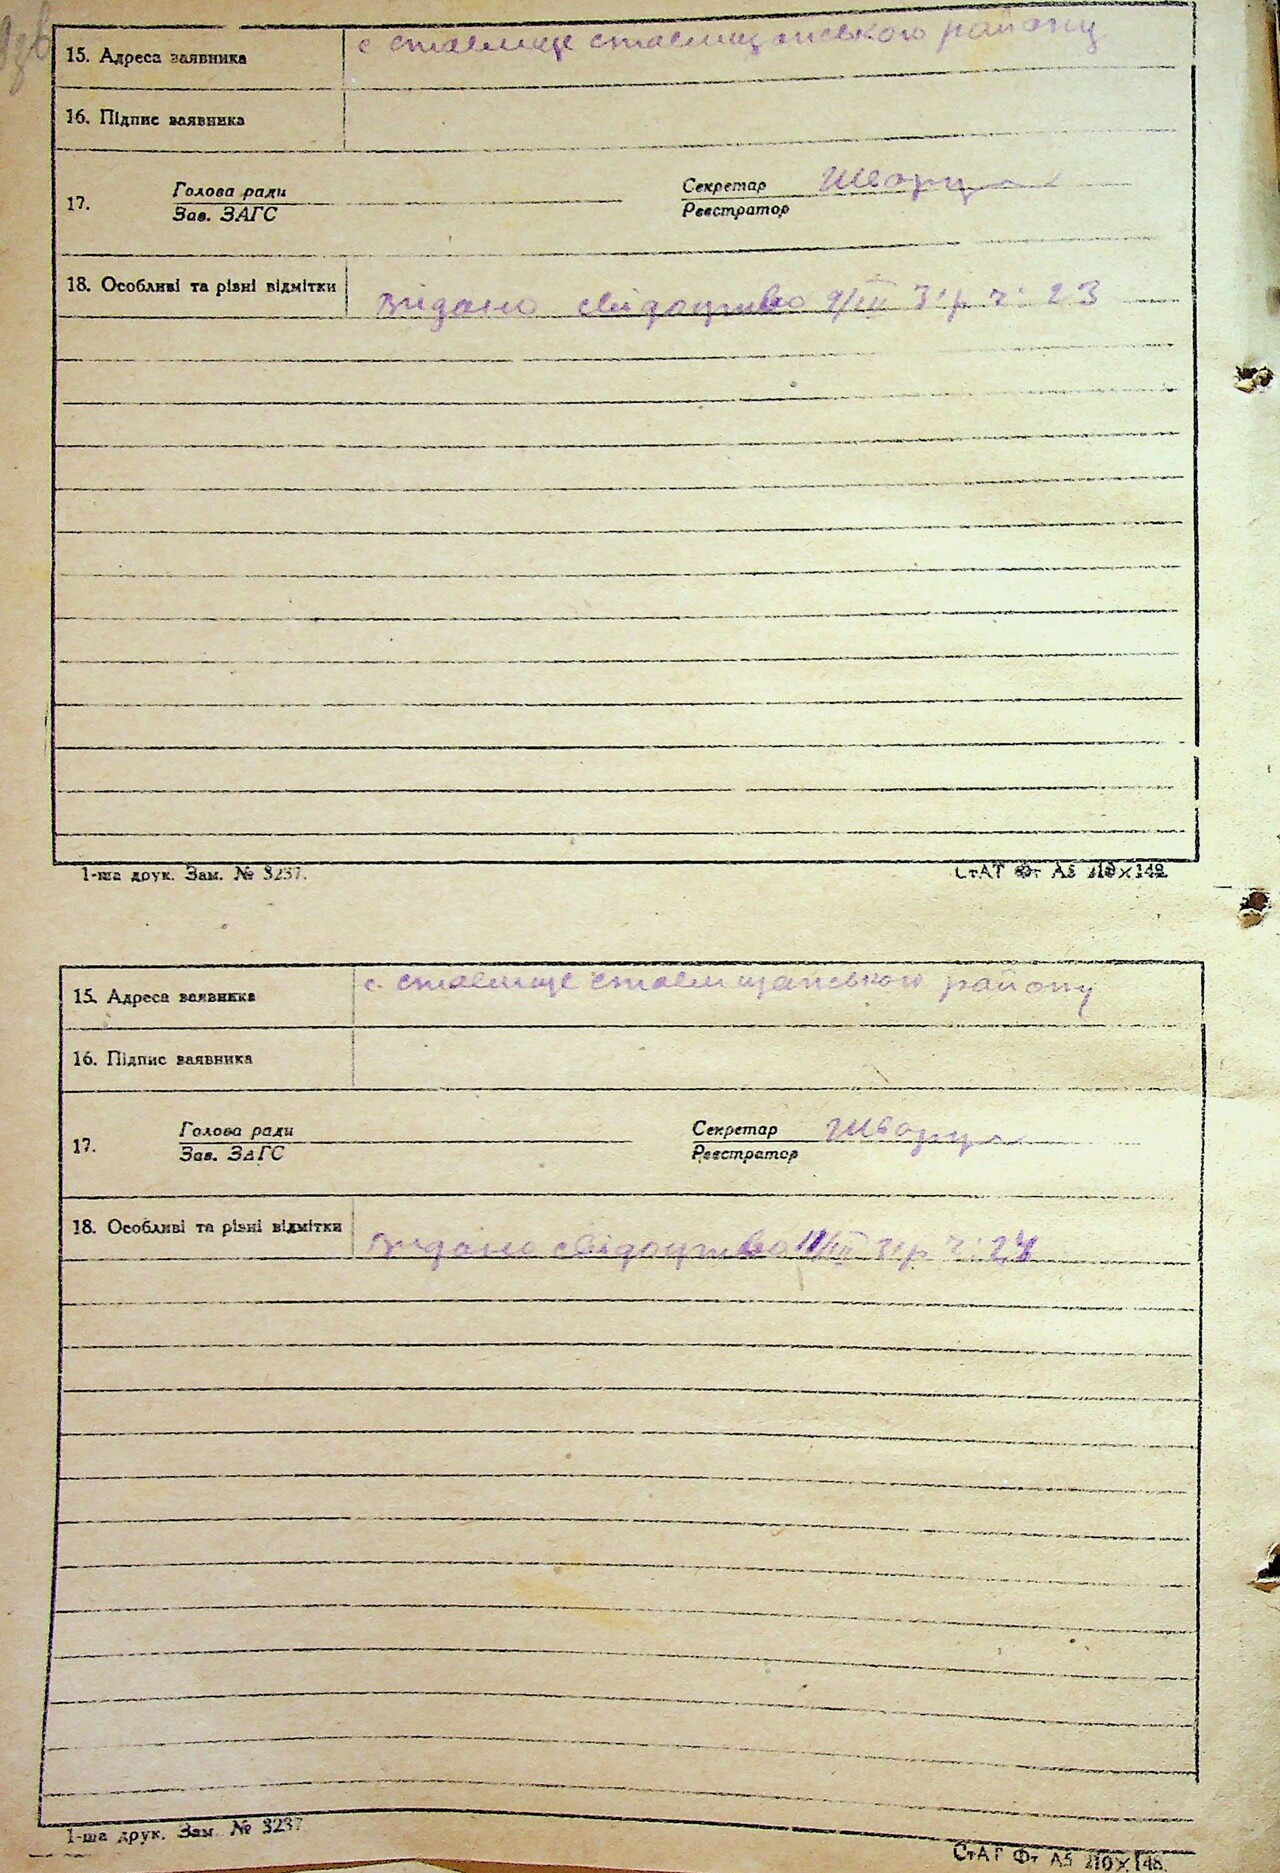 с ставище ставищанського району
15. Адреса заявника
16. Підпис заявника
17. Голова ради Секретар
Зав. ЗАГС Реєстратор
18. Особливі та різні відмітки
Видано свідоцтво 9/III 31р ч: 23
1-ша друк. Зам. № 3237. СтАТ Фт А5 210×148.
с. ставище ставищанського району
15. Адреса заявника
16. Підпис заявника
17. Голова ради Секретар
Зав. ЗАГС Реєстратор
18. Особливі та різні відмітки
Видано свідоцтво 11/III 31р ч: 24
1-ша друк. Зам. № 3237 СтАТ Фт А5 210×148.